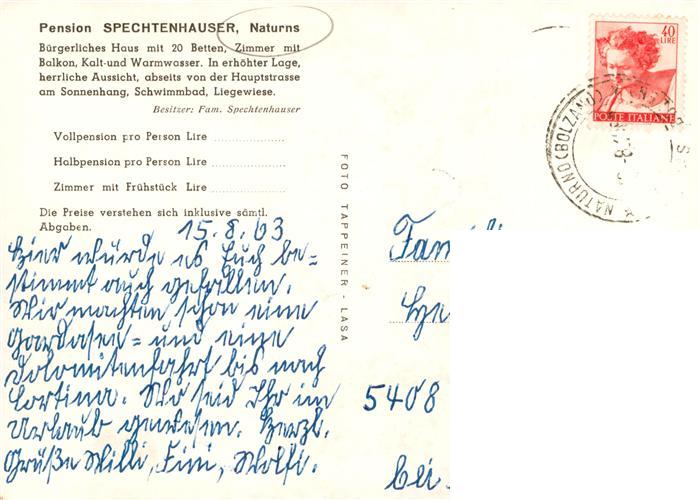 Pension SPECHTENHAUSER, Naturns
Bürgerliches Haus mit 20 Betten, Zimmer mit
Balkon, Kalt-und Warmwasser. In erhöhter Lage,
herrliche Aussicht, abseits von der Hauptstrasse
am Sonnenhang, Schwimmbad, Liegewiese.
Besitzer: Fam. Spechtenhauser
Vollpension pro Person Lire
Halbpension pro Person Lire
Zimmer mit Frühstück Lire
Die Preise verstehen sich inklusive sämtl.
Abgaben.
15.8.63
Hier würde es Euch be=
stimmt auch gefallen.
Wir machten schon eine
Gardasee= und eine
Dolomitenfahrt bis nach
Cortina. Wo seid Ihr im
Urlaub gewesen. Herzl.
Grüße Willi, Fini, Wolfi.
FOTO TAPPEINER - LASA
40
LIRE
POSTE ITALIANE
NATURNO (BOLZANO)
Fam
5408
bei